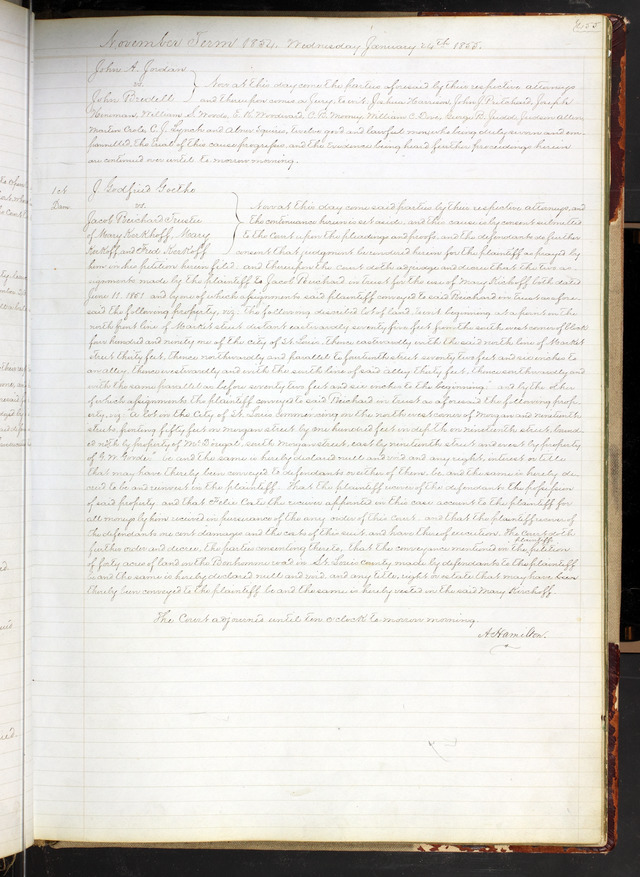 655
November Term 1854. Wednesday January 24th 1855.
John A. Jordan
vs.
John Bredell
Now at this day come the parties aforesaid by their respective attorneys
and thereupon comes a Jury, to wit, Joshua Harrison, John J. Pritchard, Joseph
Heineman, William S. Woods, E. R. Woodward, C. P. Money, William C. Doe, George K. Judd, Judson Allen,
Martin Coots, C. J. Lynch and Abner Squires, twelve good and lawful men, who being duly sworn and em-
pannelled, the trial of this cause progressed, and the evidence being heard further proceedings herein
are continued over until to morrow morning.
1st
Dam.
J. Godfried Goethe
vs.
Jacob Beichard Trustee
of Mary Kerkhoff, Mary
Kerkoff and Fred Kerkoff
Now at this day come said parties by their respective attorneys, and
the continuance herein is set aside, and the cause is by consent submitted
to the Court upon the pleadings and proofs, and the defendants do further
consent that judgment be rendered herein for the plaintiff as prayed by
him in his petition herein filed. and thereupon the Court doth adjudge and decree that the two as-
signments made by the plaintiff to Jacob Beichard in trust for the use of Mary Kirchoff both dated
June 11. 1851 and by one of which assignments said plaintiff conveyed to said Beichard in trust as afore-
said the following property, viz: The following described lot of land, to wit, beginning at a point on the
north front line of Market street distant eastwardly seventy five feet from the south west corner of block
four hundred and ninety one of the city of St. Louis, thence eastwardly with the said north line of Market
Street thirty feet, thence northwardly and parallel to fourteenth street seventy two feet and six inches to
an alley, thence westwardly and with the south line of said alley thirty feet, thence southwardly and
with the same parallel as before seventy two feet and six inches to the beginning: and by the other
of which assignments the plaintiff conveyed to said Beichard in trust as aforesaid the following prop-
erty, viz: "a lot in the City of St. Louis commencing on the north west corner of Morgan and nineteenth
streets, fronting fifty feet on Morgan street by one hundred feet in depth on nineteenth street, bound-
ed north by property of McDougal, south Morgan street, east by nineteenth street and west by property
of G. W. Goode" be and the same is hereby declared null and void and any right, interest or title
that may have thereby been conveyed to defendants or either of them, be and the same is hereby de-
creed to be and revest in the plaintiff. That the plaintiff recover of the defendants the possession
of said property and that Felix Coste the receiver appointed in this case account to the plaintiff for
all moneys by him received in pursuance of the any order of this Court. and that the plaintiff recover of
the defendants one cent damages and the costs of this suit and have thereof execution. The Court doth
further order and decree, the parties consenting thereto, that the conveyance mentioned in the plaintiffs petition
of forty acres of land on the Bonhomme road in St. Louis county made by defendants to the plaintiff
be and the same is hereby declared null and void, and any title, right or estate that may have been
thereby been conveyed to the plaintiff be and the same is hereby vested in the said Mary Kirchoff.
The Court adjourned until ten o'clock to morrow morning.
A. Hamilton.